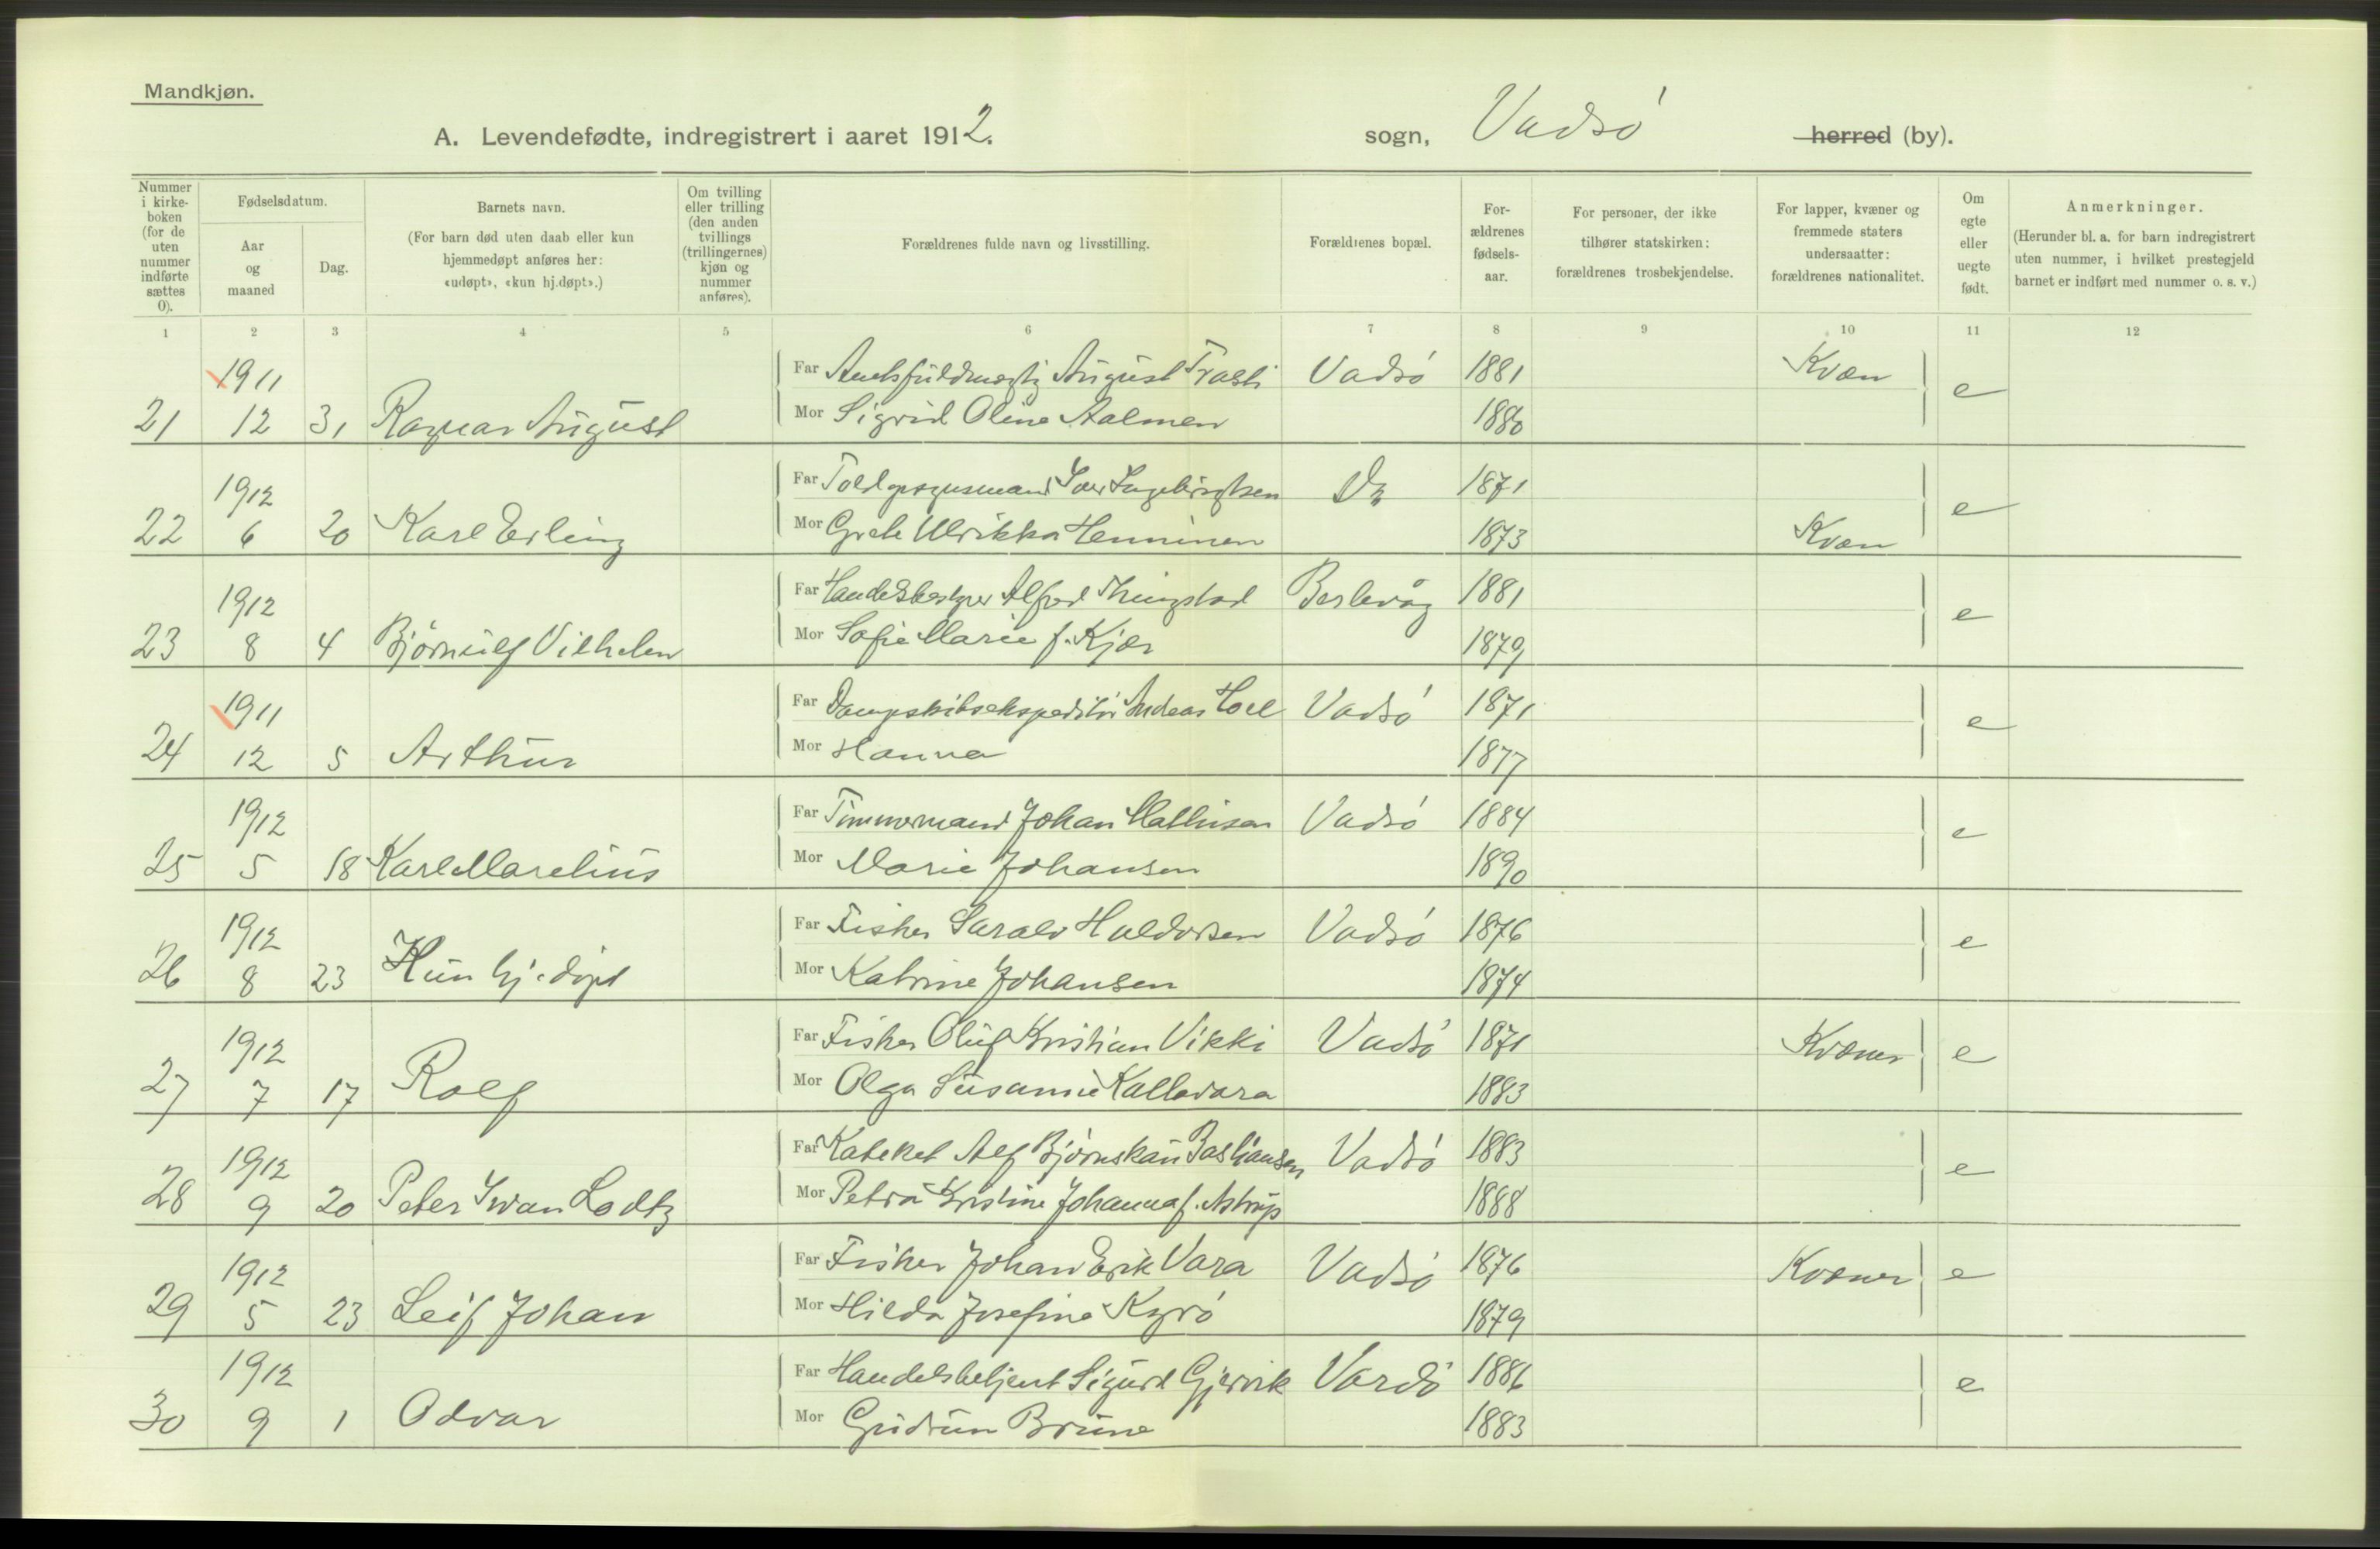 Mandkjøn.
A. Levendefødte, indregistrert i aaret 1912. sogn, Vadsö herred (by).
Nummer i kirke-boken (for de uten nummer indførte sættes 0).
Fødselsdatum.
Aar og maaned
Dag.
Barnets navn.
(For barn død uten daab eller kun hjemmedøpt anføres her: «udøpt», «kun hj.døpt».)
Om tvilling eller trilling (den anden tvillings (trillingernes) kjøn og nummer anføres).
Forældrenes fulde navn og livsstilling.
Forældrenes bopæl.
For-ældrenes fødsels-aar.
For personer, der ikke tilhører statskirken: forældrenes trosbekjendelse.
For lapper, kvæner og fremmede staters undersaatter: forældrenes nationalitet.
Om egte eller uegte født.
Anmerkninger.
(Herunder bl. a. for barn indregistrert uten nummer, i hvilket prestegjeld barnet er indført med nummer o. s. v.)
1 2 3 4 5 6 7 8 9 10 11 12
1911 Far Amtsfuldmægtig August Trasti Vadsö 1881 Kvæn e
21 12 31 Ragnar August Mor Sigrid Oline Aalmen 1880
1912 Far Iver Ingebrigtsen Do 1871 e
22 6 20 Karl Erling Mor Grete Ulrikka Henninen 1873 Kvæn
1912 Far Handelsbestyrer Alfred Berlevåg 1881 e
23 8 4 Björnulf Vilhelm Mor Sofie Marie f. Kjær 1879
1911 Far Dampskibsekspeditör Andreas Hoel Vadsö 1871 e
24 12 5 Arthur Mor Hanna 1877
1912 Far Tömmermand Johan Mathisen Vadsö 1884 e
25 5 18 Karl Marelius Mor Marie Johansen 1890
1912 Far Fisker Haldorsen Vadsö 1876 e
26 8 23 Kun hj. döpt Mor Katrine Johansen 1874
1912 Far Fisker Oluf Kristian Vikki Vadsö 1871 Kvæner e
27 7 17 Rolf Mor Olga Susanne Kallavara 1883
1912 Far Kateket Alf Björnskau Bastiansen Vadsö 1883 e
28 9 20 Peter Ivan Lodtz Mor Petra Kristine Johanna f. Astrup 1888
1912 Far Fisker Johan Erik Vara Vadsö 1876 Kvæner e
29 5 23 Leif Johan Mor Hilda Josefine Kyrö 1879
1912 Far Handelsbetjent Sigurd Gjervik Vardö 1886 e
30 9 1 Odvar Mor Gudrun Brune 1883